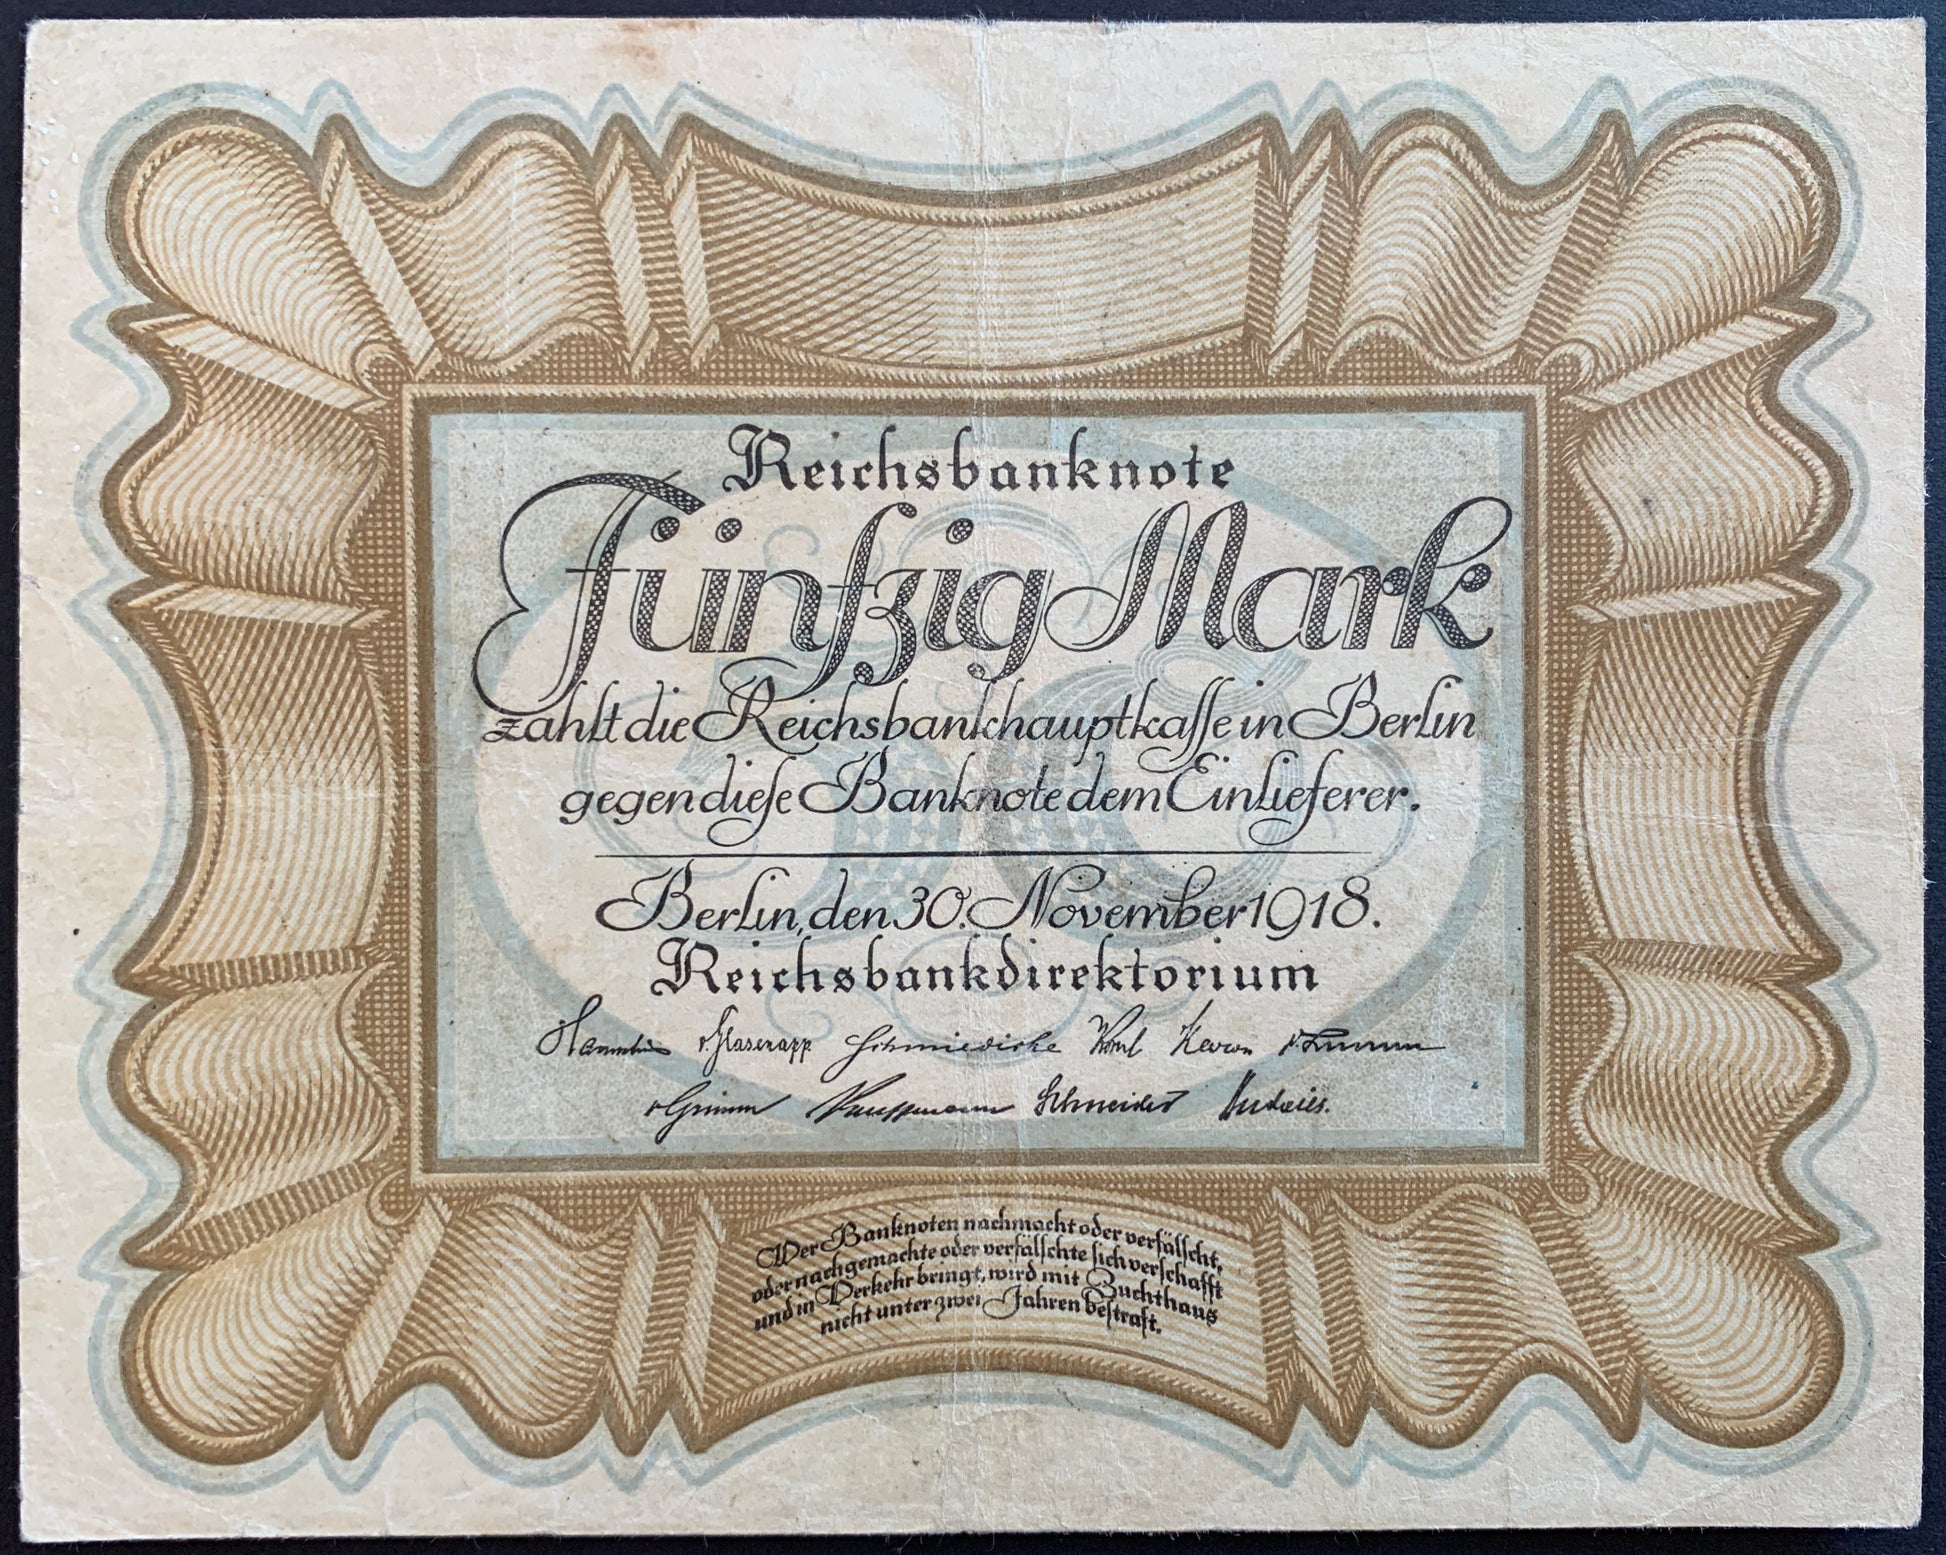 Reichsbanknote
Fünfzig Mark
zahlt die Reichsbankhauptkaſſe in Berlin
gegen dieſe Banknote dem Einlieferer.
Berlin, den 30. November 1918.
Reichsbankdirektorium
v. Glasenapp Schmiedicke Korn
v. Grimm Kauffmann Schneider
Wer Banknoten nachmacht oder verfälſcht,
oder nachgemachte oder verfälſchte ſich verſchafft
und in Verkehr bringt, wird mit Zuchthaus
nicht unter zwei Jahren beſtraft.